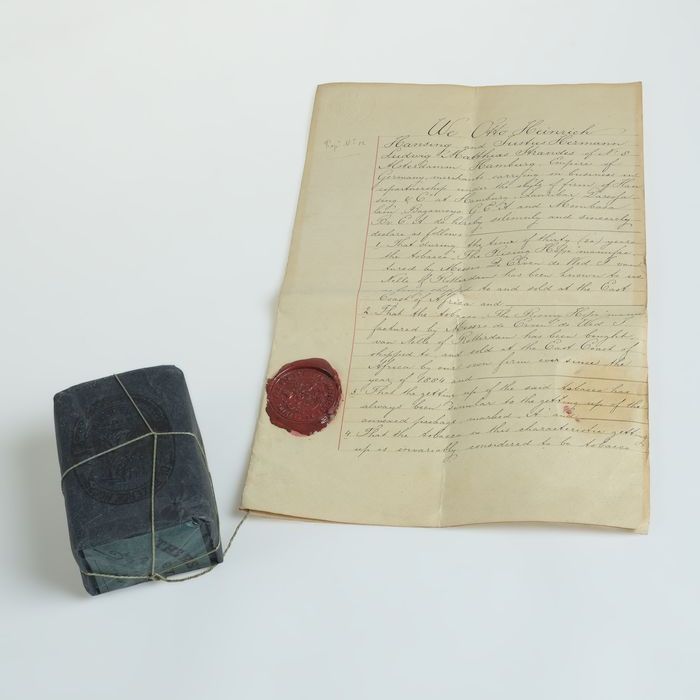 We Otto Heinrich
Hansing and Justus Hermann
Ludwig Matthias Strandes of
Hamburg Empire of
Germany merchants carrying on business in
copartnership under the style of firm of Han
sing & Co at Hamburg, Zanzibar Daressa
laam Bagamoyo G E A and Mombasa
B. E. A. do hereby solemnly and sincerely
declare as follows
1. That during the time of thirty (30) years
the tobacco "The Rising Hope" manufac
tured by Messrs De Erven de Wed J van
Nelle of Rotterdam has been known to us
as being shipped to and sold at the East
Coast of Africa and
2. That the tobacco "The Rising Hope" manu
factured by Messrs de Erven de Wed J
van Nelle of Rotterdam has been bought
shipped to and sold at the East Coast of
Africa by our own firm ever since the
year of 1884 and
3. That the getting up of the said tobacco has
always been similar to the getting up of the
annexed package marked "A" and
4. That the tobacco in this characteristic getting
up is invariably considered to be tobacco